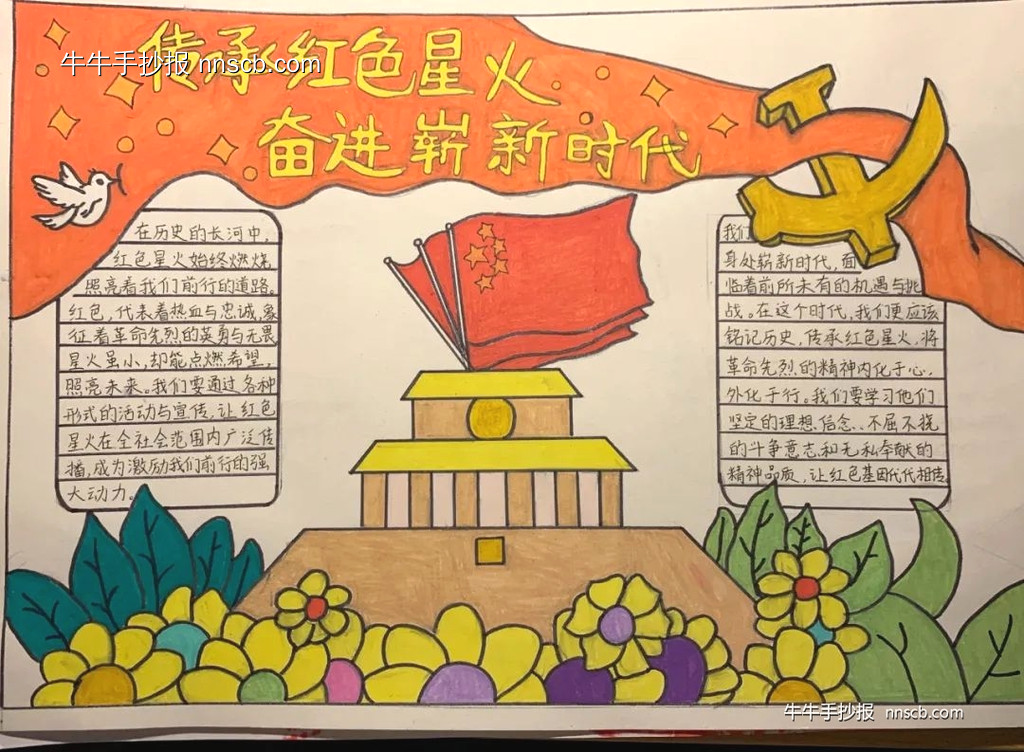 传承红色星火
牛牛手抄报 nnscb.com
奋进崭新时代
在历史的长河中,
红色星火始终燃烧
照亮着我们前行的道路。
红色,代表着热血与忠诚,象
征着革命先烈的英勇与无畏
星火虽小,却能点燃希望,
照亮未来。我们要通过各种
形式的活动与宣传,让红色
星火在全社会范围内广泛传
播,成为激励我们前行的强
大动力。
我们
身处崭新时代,面
临着前所未有的机遇与挑
战。在这个时代,我们更应该
铭记历史,传承红色星火,将
革命先烈的精神内化于心,
外化于行。我们要学习他们
坚定的理想信念、不屈不挠
的斗争意志和无私奉献的
精神品质,让红色基因代代相传
牛牛手抄报 nnscb.com